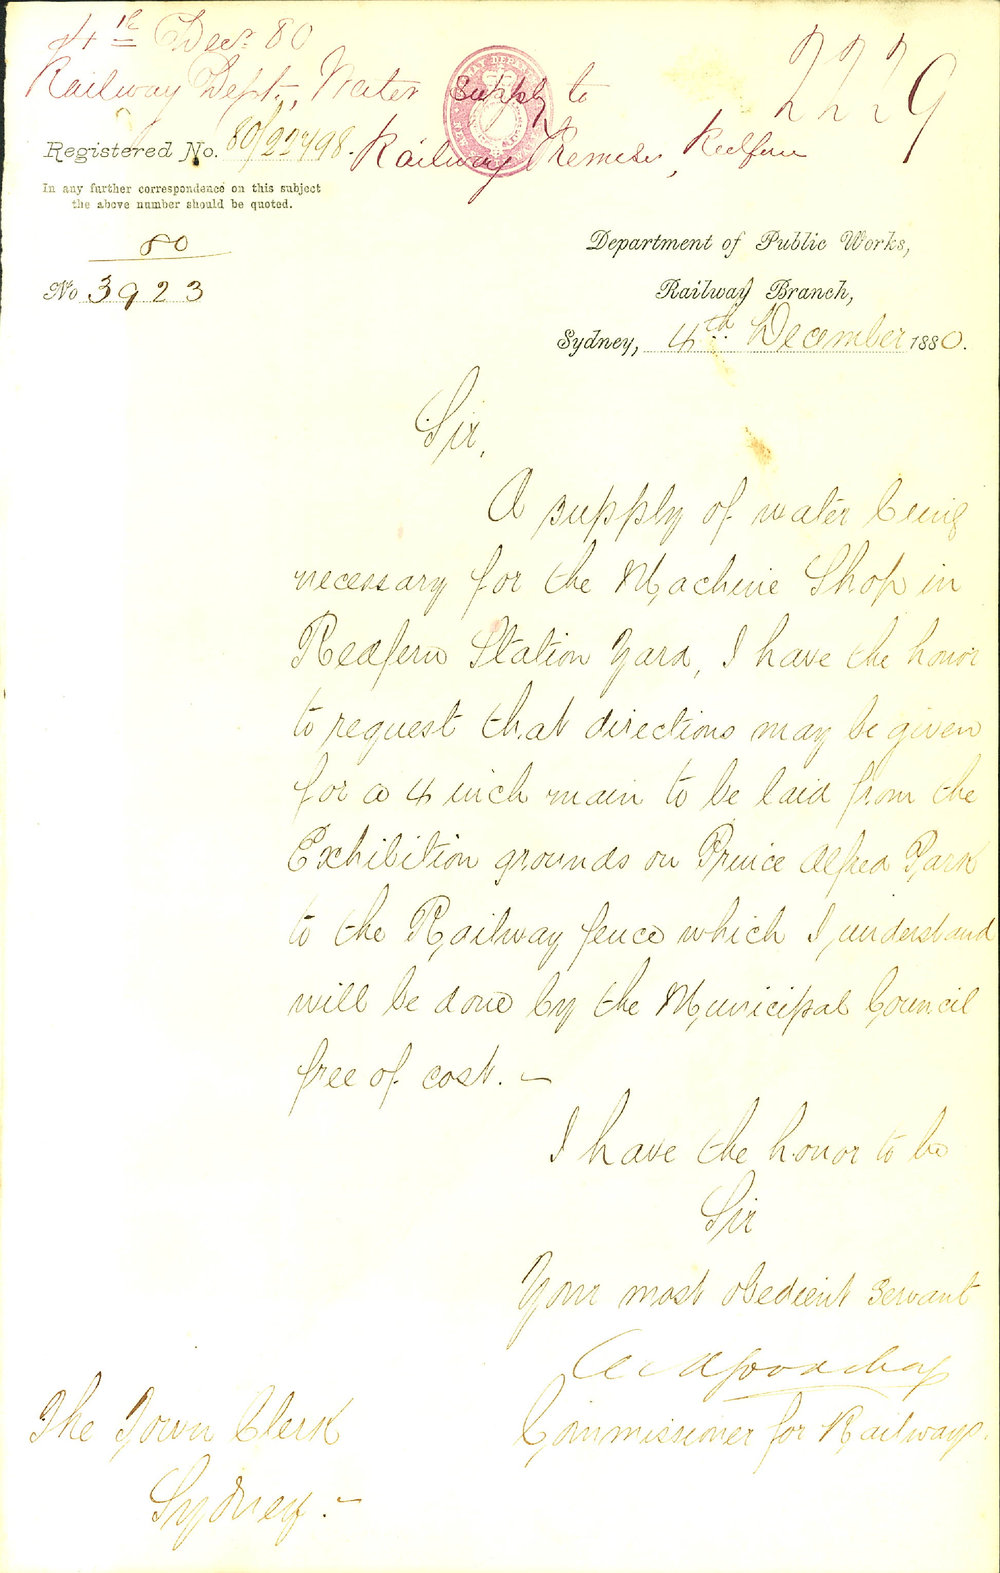 4th Decr 80
Railway Dept, Water supply to
Railway Premises, Redfern
2229
Registered No. 80/22498.
In any further correspondence on this subject
the above number should be quoted.
80
No 3923
Department of Public Works,
Railway Branch,
Sydney, 4th December 1880.
Sir,
A supply of water being
necessary for the Machine Shop in
Redfern Station Yard, I have the honor
to request that directions may be given
for a 4 inch main to be laid from the
Exhibition grounds on Prince Alfred Park
to the Railway fence which I understand
will be done by the Municipal Council
free of cost. —
I have the honor to be
Sir
Your most obedient servant
Commissioner for Railways.
The Town Clerk
Sydney. —